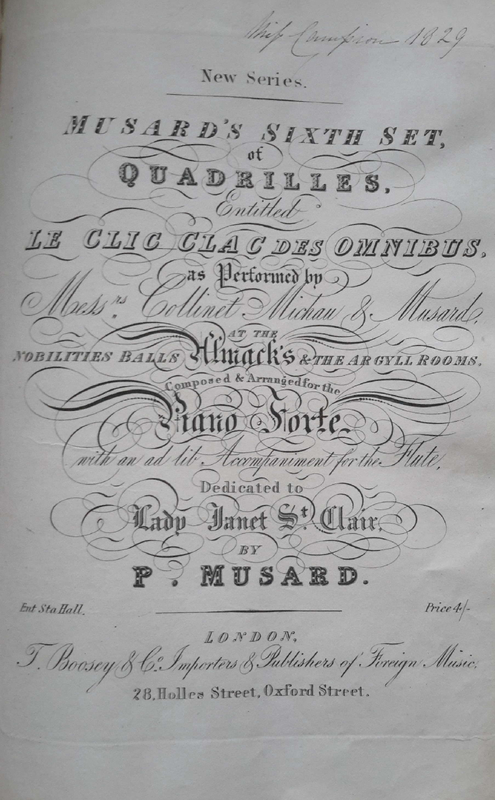 Miss Campion 1829
New Series.
MUSARD'S SIXTH SET,
of
QUADRILLES,
Entitled
LE CLIC CLAC DES OMNIBUS,
as Performed by
Messrs. Collinet Michau & Musard,
AT THE
NOBILITIES BALLS Almack's & THE ARGYLL ROOMS,
Composed & Arranged for the
Piano Forte
with an ad lib. Accompaniment for the Flute,
Dedicated to
Lady Janet St. Clair,
BY
P. MUSARD.
Ent Sta Hall. Price 4/-
LONDON,
T. Boosey & Co. Importers & Publishers of Foreign Music.
28, Holles Street, Oxford Street.